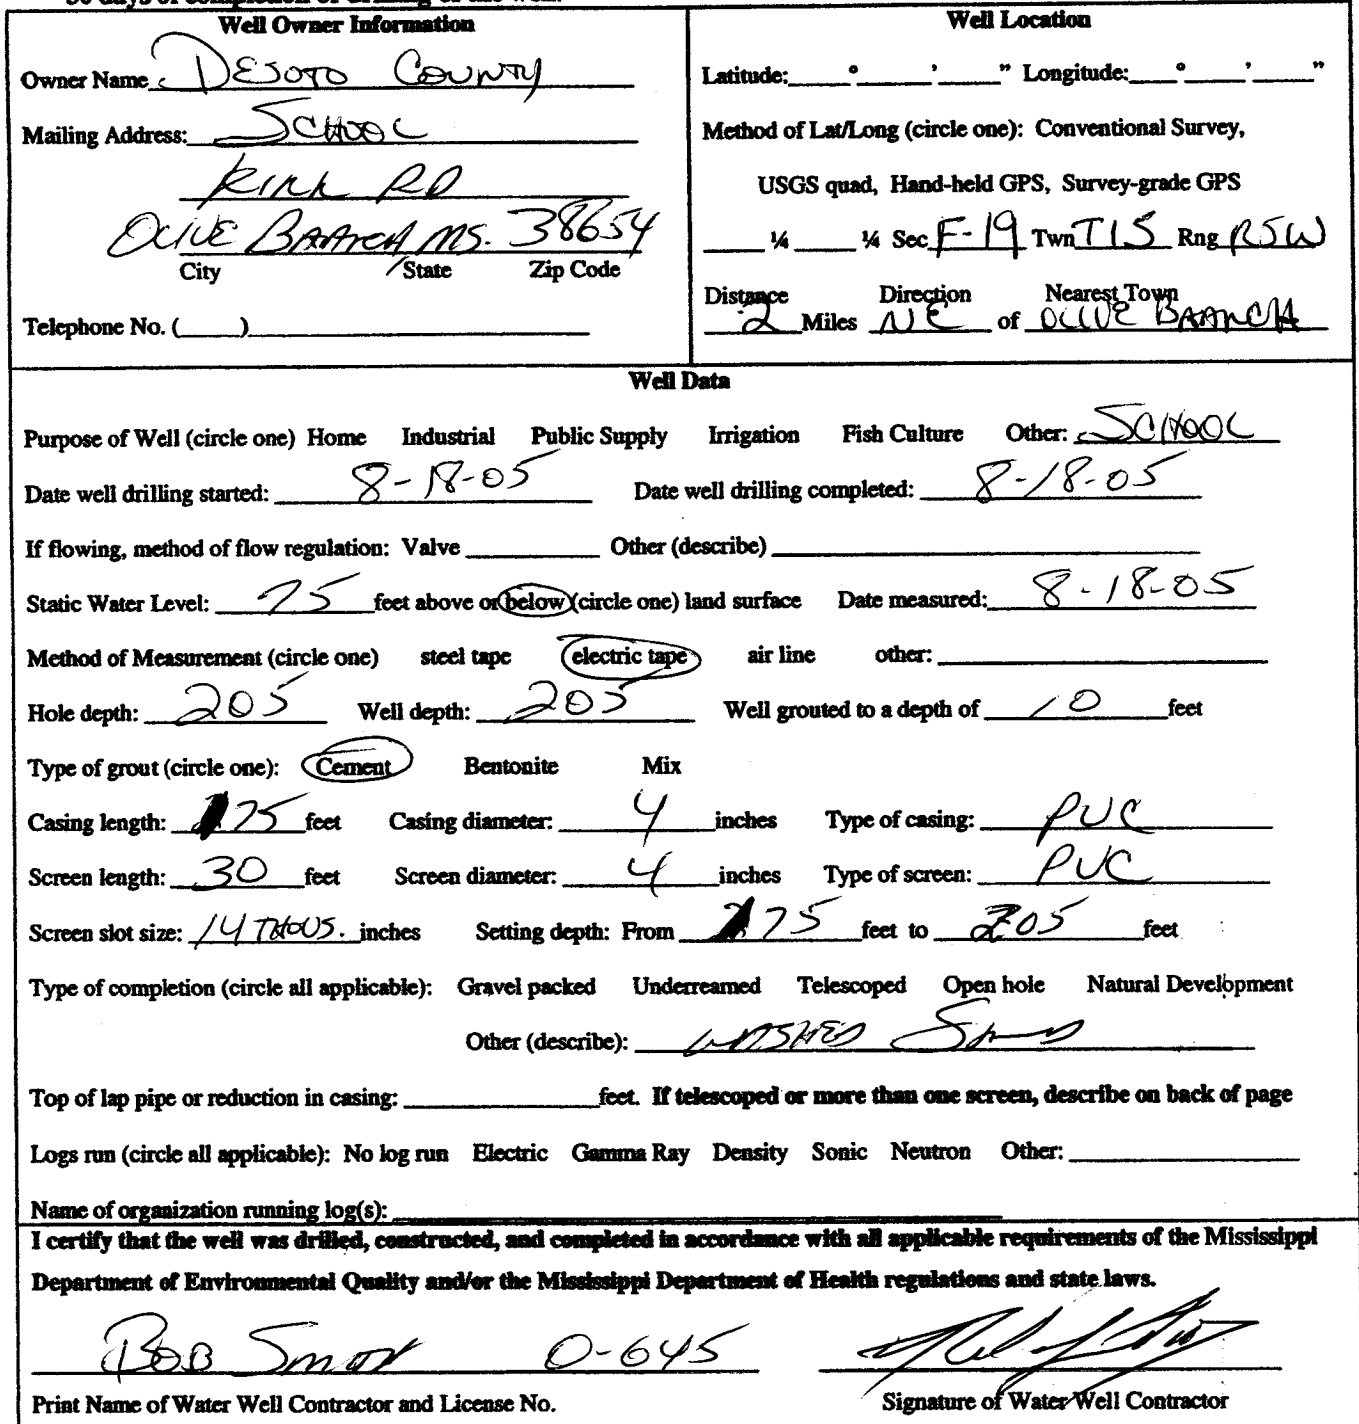 30 days of completion of drilling of the well.
Well Owner Information
Owner Name DESOTO COUNTY
Mailing Address: SCHOOL
KIRK RD
OLIVE BRANCH MS. 38654
City State Zip Code
Telephone No. (____)
Well Location
Latitude:____°____'____" Longitude:____°____'____"
Method of Lat/Long (circle one): Conventional Survey,
USGS quad, Hand-held GPS, Survey-grade GPS
____ ¼ ____ ¼ Sec F-19 Twn T1S Rng R5W
Distance Direction Nearest Town
2 Miles NE of OLIVE BRANCH
Well Data
Purpose of Well (circle one) Home Industrial Public Supply Irrigation Fish Culture Other: SCHOOL
Date well drilling started: 8-18-05 Date well drilling completed: 8-18-05
If flowing, method of flow regulation: Valve ________ Other (describe) ________
Static Water Level: 75 feet above or below (circle one) land surface Date measured: 8-18-05
Method of Measurement (circle one) steel tape electric tape air line other: ________
Hole depth: 205 Well depth: 205 Well grouted to a depth of 10 feet
Type of grout (circle one): Cement Bentonite Mix
Casing length: 175 feet Casing diameter: 4 inches Type of casing: PVC
Screen length: 30 feet Screen diameter: 4 inches Type of screen: PVC
Screen slot size: 14 THOUS. inches Setting depth: From 175 feet to 205 feet
Type of completion (circle all applicable): Gravel packed Underreamed Telescoped Open hole Natural Development
Other (describe): WASHED SAND
Top of lap pipe or reduction in casing: ________ feet. If telescoped or more than one screen, describe on back of page
Logs run (circle all applicable): No log run Electric Gamma Ray Density Sonic Neutron Other: ________
Name of organization running log(s): ________
I certify that the well was drilled, constructed, and completed in accordance with all applicable requirements of the Mississippi
Department of Environmental Quality and/or the Mississippi Department of Health regulations and state laws.
BOB SMITH 0-645
Print Name of Water Well Contractor and License No. Signature of Water Well Contractor